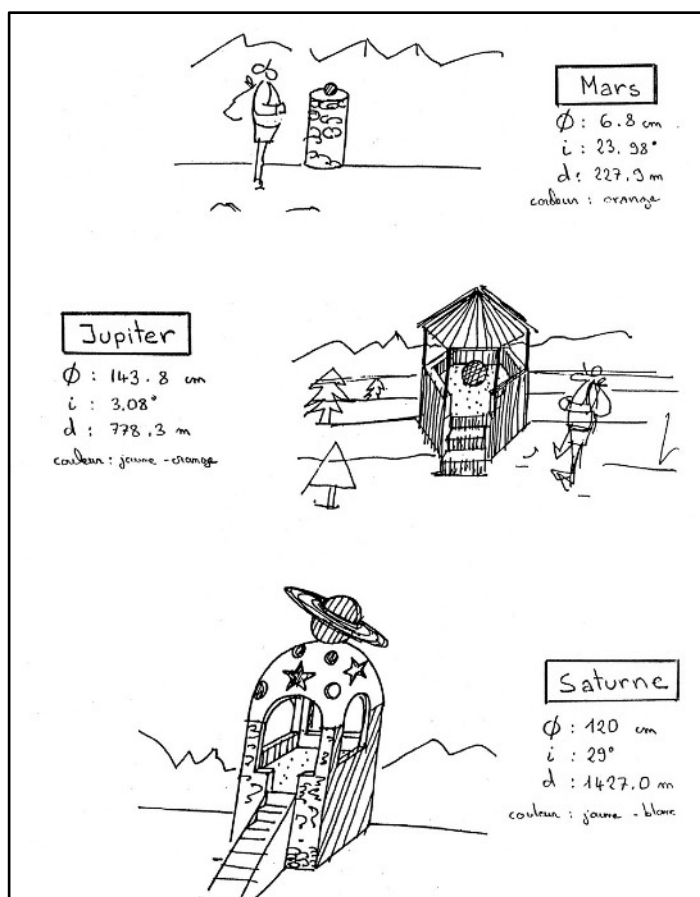 Mars
Ø : 6.8 cm
i : 23.98°
d : 227,9 m
couleur : orange
Jupiter
Ø : 143.8 cm
i : 3,08°
d : 778,3 m
couleur : jaune - orange
Saturne
Ø : 120 cm
i : 29°
d : 1427,0 m
couleur : jaune - blanc